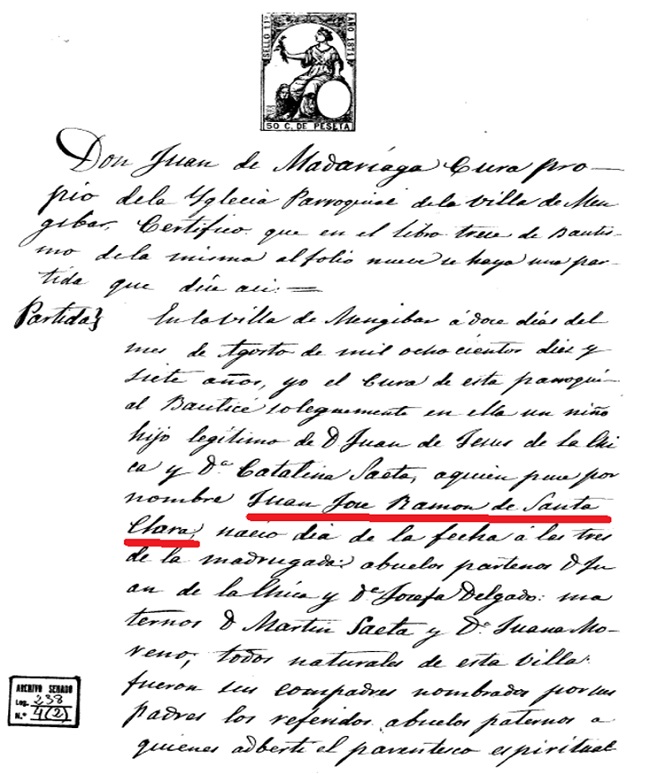 SELLO 11º
AÑO 1871
50 C. DE PESETA
Don Juan de Madariaga Cura pro-
pio de la Yglecia Parroquial de la Villa de Men
gibar, Certifico, que en el libro trece de Bautis-
mo de la misma al folio nueve se haya una par-
tida que dice asi: =
Partida}
En la villa de Mengibar á doce dias del
mes de Agosto de mil ochocientos dies y
siete años, yo el Cura de esta parroqui-
al Bauticé solegnemente en ella un niño
hijo legítimo de D Juan de Jesus de la Chi
ca y Dª Catalina Saeta, aquien puse por
nombre Juan Jose Ramon de Santa
Clara, nacio dia de la fecha á las tres
de la madrugada: abuelos partenos D Ju
an de la Chica y Dª Josefa Delgado: ma
ternos D Martin Saeta y Dª Juana Mo-
reno, todos naturales de esta villa:
fueron sus compadres nombrados por sus
padres los referidos abuelos paternos a
quienes adberti el parentesco espiritual
ARCHIVO SENADO
Leg. 238
N.º 4(2)